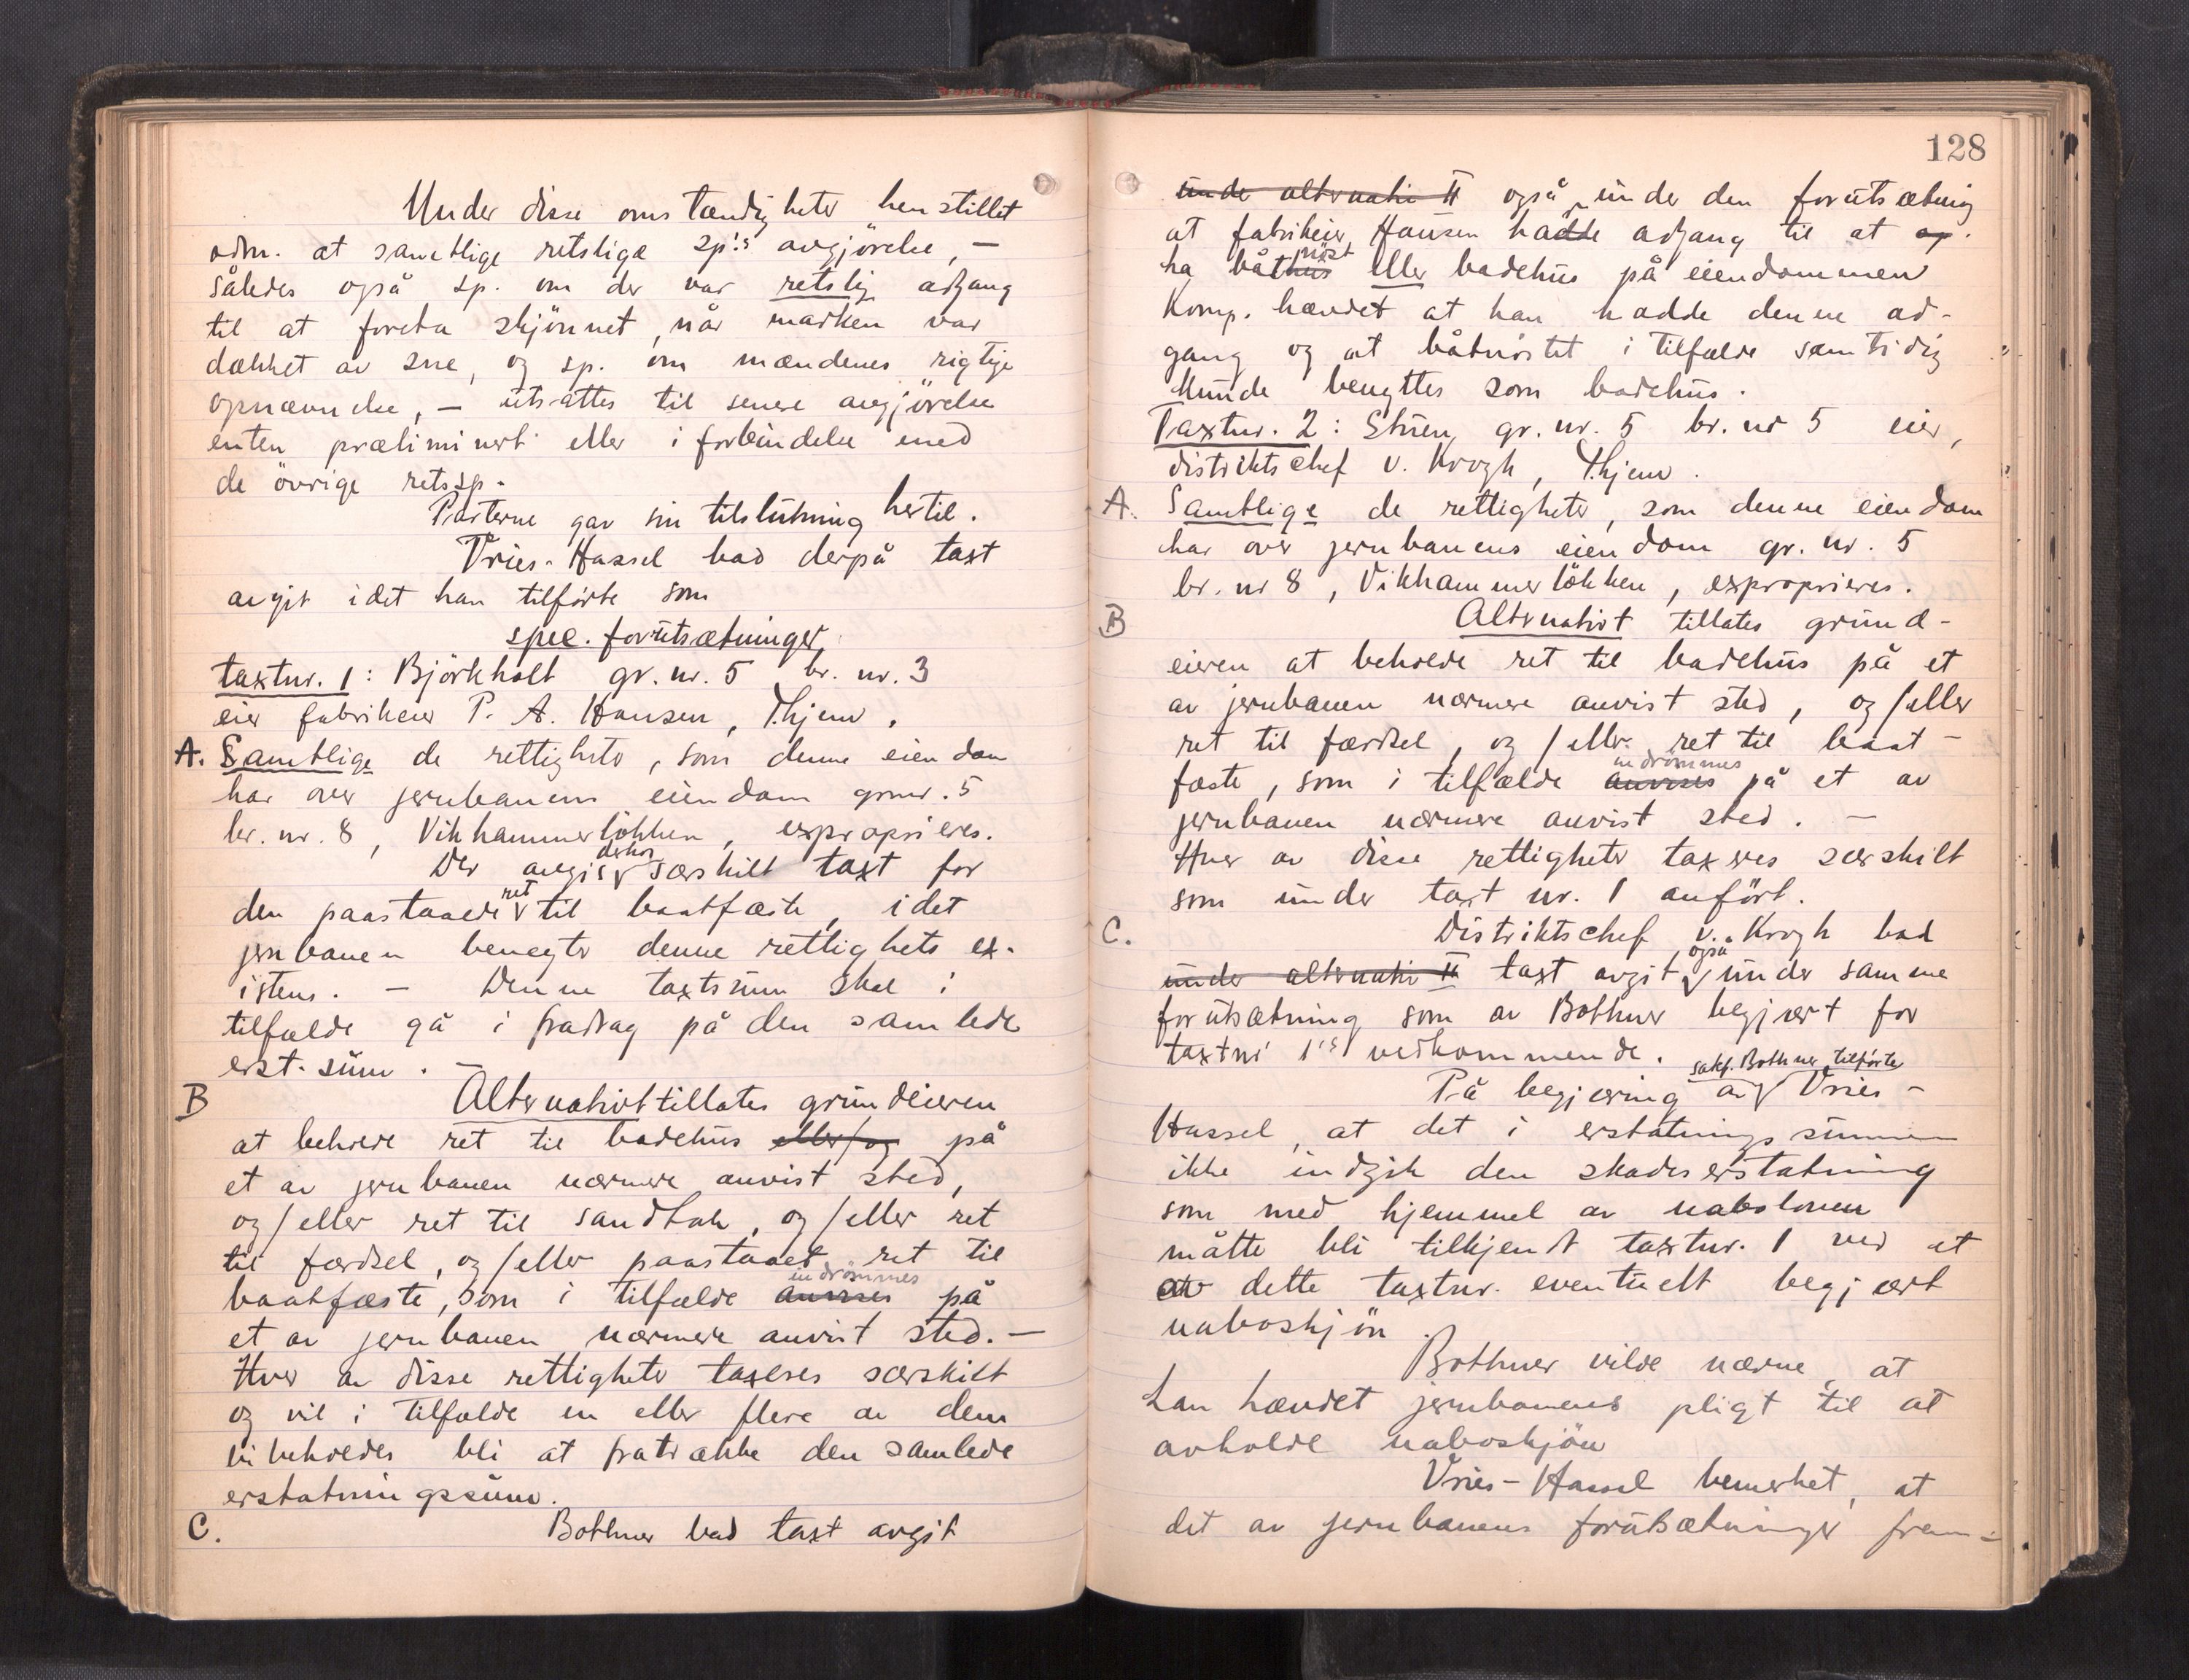 Under disse omstændigheter henstillet
adm. at samtlige retslige sp!s avgjörelse, —
således også sp. om der var retslig adgang
til at foreta skjönnet, når marken var
dækket av sne, og sp. om mændenes rigtige
opnævnelse, — utsattes til senere avgjörelse
enten præliminært eller i forbindelse med
de övrige retssp.
Parterne gav sin tilslutning hertil.
Vries-Hassel bad derpå taxt
avgit idet han tilförte som
spec. forutsætninger,
taxtnr. 1: Björkholt gr. nr. 5 br. nr. 3
eier fabrikeier P. A. Hansen, Thjem.
A. Samtlige de rettigheter, som denne eiendom
har over jernbanens eiendom grnr. 5
br. nr. 8, Vikhammerlökken, exproprieres.
Der avgis derhos særskilt taxt for
den paastaaede ret til baatfæste, idet
jernbanen benegter denne rettighets ex-
istens. — Denne taxtsum skal i
tilfælde gå i fradrag på den samlede
erst. sum. —
B Alternativt tillates grundeieren
at beholde ret til badehus eller/og på
et av jernbanen nærmere anvist sted,
og/eller ret til sandtak, og/eller ret
til færdsel, og/eller paastaaet ret til
baatfæste, som i tilfælde anvises indrömmes på
et av jernbanen nærmere anvist sted. —
Hver av disse rettigheter taxeres særskilt
og vil i tilfælde en eller flere av dem
bibeholdes bli at fratrække den samlede
erstatningssum.
C. Bothner bad taxt avgit
128
under alternativ II også under den forutsætning
at fabrikeier Hansen hadde adgang til at op.
ha båthus nöst eller badehus på eiendommen
Komp. hævdet at han hadde denne ad-
gang og at båtnöstet i tilfælde samtidig
kunde benyttes som badehus.
Taxtnr. 2: Stuen, gr. nr. 5 br. nr 5 eier,
distriktschef v. Krogh, Thjem.
A. Samtlige de rettigheter, som denne eiendom
har over jernbanens eiendom gr. nr. 5
br. nr 8, Vikhammerlökken, exproprieres.
B Alternativt tillates grund-
eieren at beholde ret til badehus på et
av jernbanen nærmere anvist sted, og/eller
ret til færdsel, og/eller ret til baat-
fæste, som i tilfælde anvises indrömmes på et av
jernbanen nærmere anvist sted. —
Hver av disse rettigheter taxeres særskilt
som under taxt nr. 1 anfört.
C. Distriktschef v. Krogh bad
under alternativ II taxt avgit også under samme
forutsætning som av Bothner begjært for
taxtnr 1's vedkommende.
På begjæring av sakf. Bothner tilförte Vries-
Hassel, at det i erstatningssummen
ikke indgik den skadeserstatning
som med hjemmel av naboloven
måtte bli tilkjendt taxtnr. 1 ved et
av dette taxtnr. eventuelt begjært
naboskjön.
Bothner vilde nævne, at
han hævdet jernbanens pligt til at
avholde naboskjön
Vries-Hassel bemerket, at
det av jernbanens forutsætninger frem-